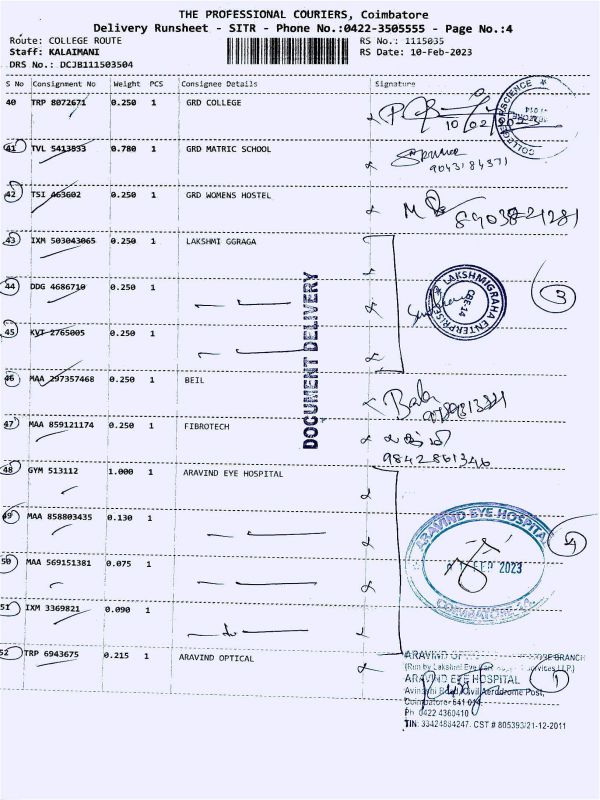 THE PROFESSIONAL COURIERS, Coimbatore
Delivery Runsheet - SITR - Phone No.:0422-3505555 - Page No.:4
Route: COLLEGE ROUTE
RS No.: 1115035
Staff: KALAIMANI
RS Date: 10-Feb-2023
DRS No.: DCJB111503504
S No Consignment No Weight PCS Consignee Details Signature
40 TRP 8072671 0.250 1 GRD COLLEGE
10/02/2023
41 TVL 5413933 0.780 1 GRD MATRIC SCHOOL
9043184371
42 TSI 463602 0.250 1 GRD WOMENS HOSTEL
89038-21281
43 IXM 503043065 0.250 1 LAKSHMI GGRAGA
LAKSHMIGRAHA ENTERPRISES
CBE-14
3
44 DDG 4686710 0.250 1
45 KVT 2765005 0.250 1
DOCUMENT DELIVERY
46 MAA 297357468 0.250 1 BEIL
Bala
47 MAA 859121174 0.250 1 FIBROTECH
9842861346
48 GYM 513112 1.000 1 ARAVIND EYE HOSPITAL
49 MAA 858803435 0.130 1
ARAVIND EYE HOSPITAL
FEB 2023
COIMBATORE
4
50 MAA 569151381 0.075 1
51 IXM 3369821 0.090 1
52 TRP 6943675 0.215 1 ARAVIND OPTICAL
ARAVIND BRANCH
(Run by Lakshmi Eye Services LLP.)
ARAVIND EYE HOSPITAL
Avinashi Road, Civil Aerodrome Post,
Coimbatore-641 014.
Ph 0422 4360410
TIN: 33424884247. CST # 805393/21-12-2011
1